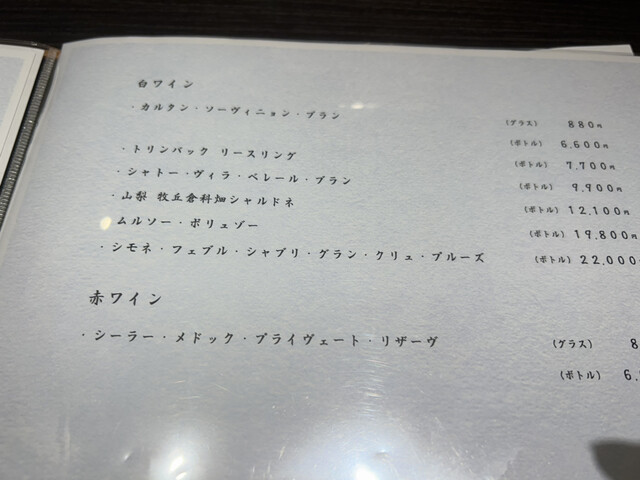 白ワイン
・カルタン・ソーヴィニョン・ブラン (グラス) 880円
(ボトル) 6,600円
・トリンバック リースリング (ボトル) 7,700円
・シャトー・ヴィラ・ベレール・ブラン (ボトル) 9,900円
・山梨 牧丘倉科畑シャルドネ (ボトル) 12,100円
・ムルソー・ポリュゾー (ボトル) 19,800円
・シモネ・フェブル・シャブリ・グラン・クリュ・プルーズ (ボトル) 22,000
赤ワイン
・シーラー・メドック・プライヴェート・リザーヴ (グラス) 8
(ボトル) 6,